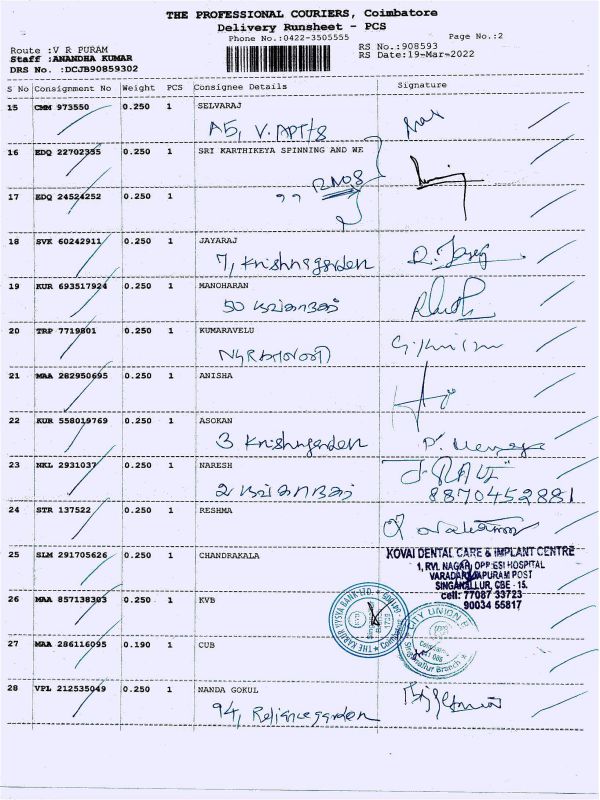 THE PROFESSIONAL COURIERS, Coimbatore
Delivery Runsheet - PCS
Phone No.:0422-3505555
Page No.:2
Route :V R PURAM
RS No.:908593
Staff :ANANDHA KUMAR
RS Date:19-Mar-2022
DRS No. :DCJB90859302
S No Consignment No Weight PCS Consignee Details Signature
15 CMM 973550 0.250 1 SELVARAJ
A5, V. APTS
16 EDQ 22702335 0.250 1 SRI KARTHIKEYA SPINNING AND WE
17 EDQ 24524252 0.250 1 ,,
18 SVK 60242911 0.250 1 JAYARAJ
7, Krishnagarden
19 KUR 693517924 0.250 1 MANOHARAN
50
20 TRP 7719801 0.250 1 KUMARAVELU
21 MAA 282950695 0.250 1 ANISHA
22 KUR 558019769 0.250 1 ASOKAN
3 Krishnagarden
23 NKL 2931037 0.250 1 NARESH
2
8870452881
24 STR 137522 0.250 1 RESHMA
25 SLM 291705626 0.250 1 CHANDRAKALA
KOVAI DENTAL CARE & IMPLANT CENTRE
1, RVL NAGAR, OPP ESI HOSPITAL
VARADARAJAPURAM POST
SINGANALLUR, CBE - 15.
cell: 77087 33723
90034 55817
26 MAA 857138303 0.250 1 KVB
THE KARUR VYSYA BANK LTD.
Coimbatore
CITY UNION B
Singanallur Branch
27 MAA 286116095 0.190 1 CUB
28 VPL 212535049 0.250 1 NANDA GOKUL
94, Reliancegarden